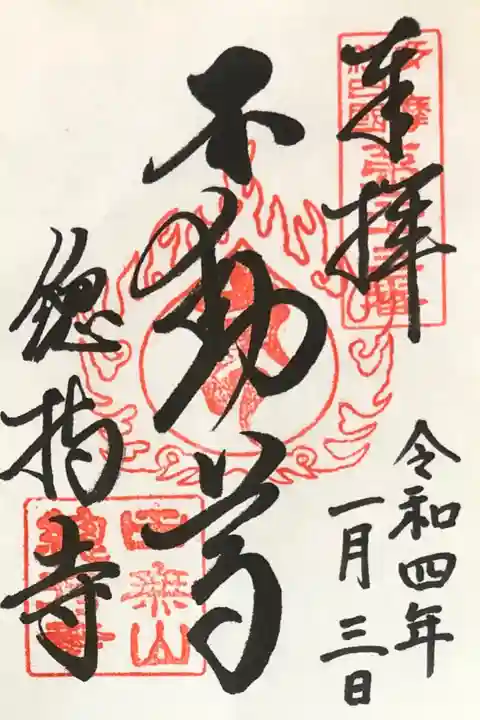 奉拝
不動尊
總持寺
令和四年
一月三日
田無山
總持寺